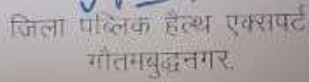 जिला पब्लिक हैल्थ एक्सपर्ट
गौतमबुद्धनगर.